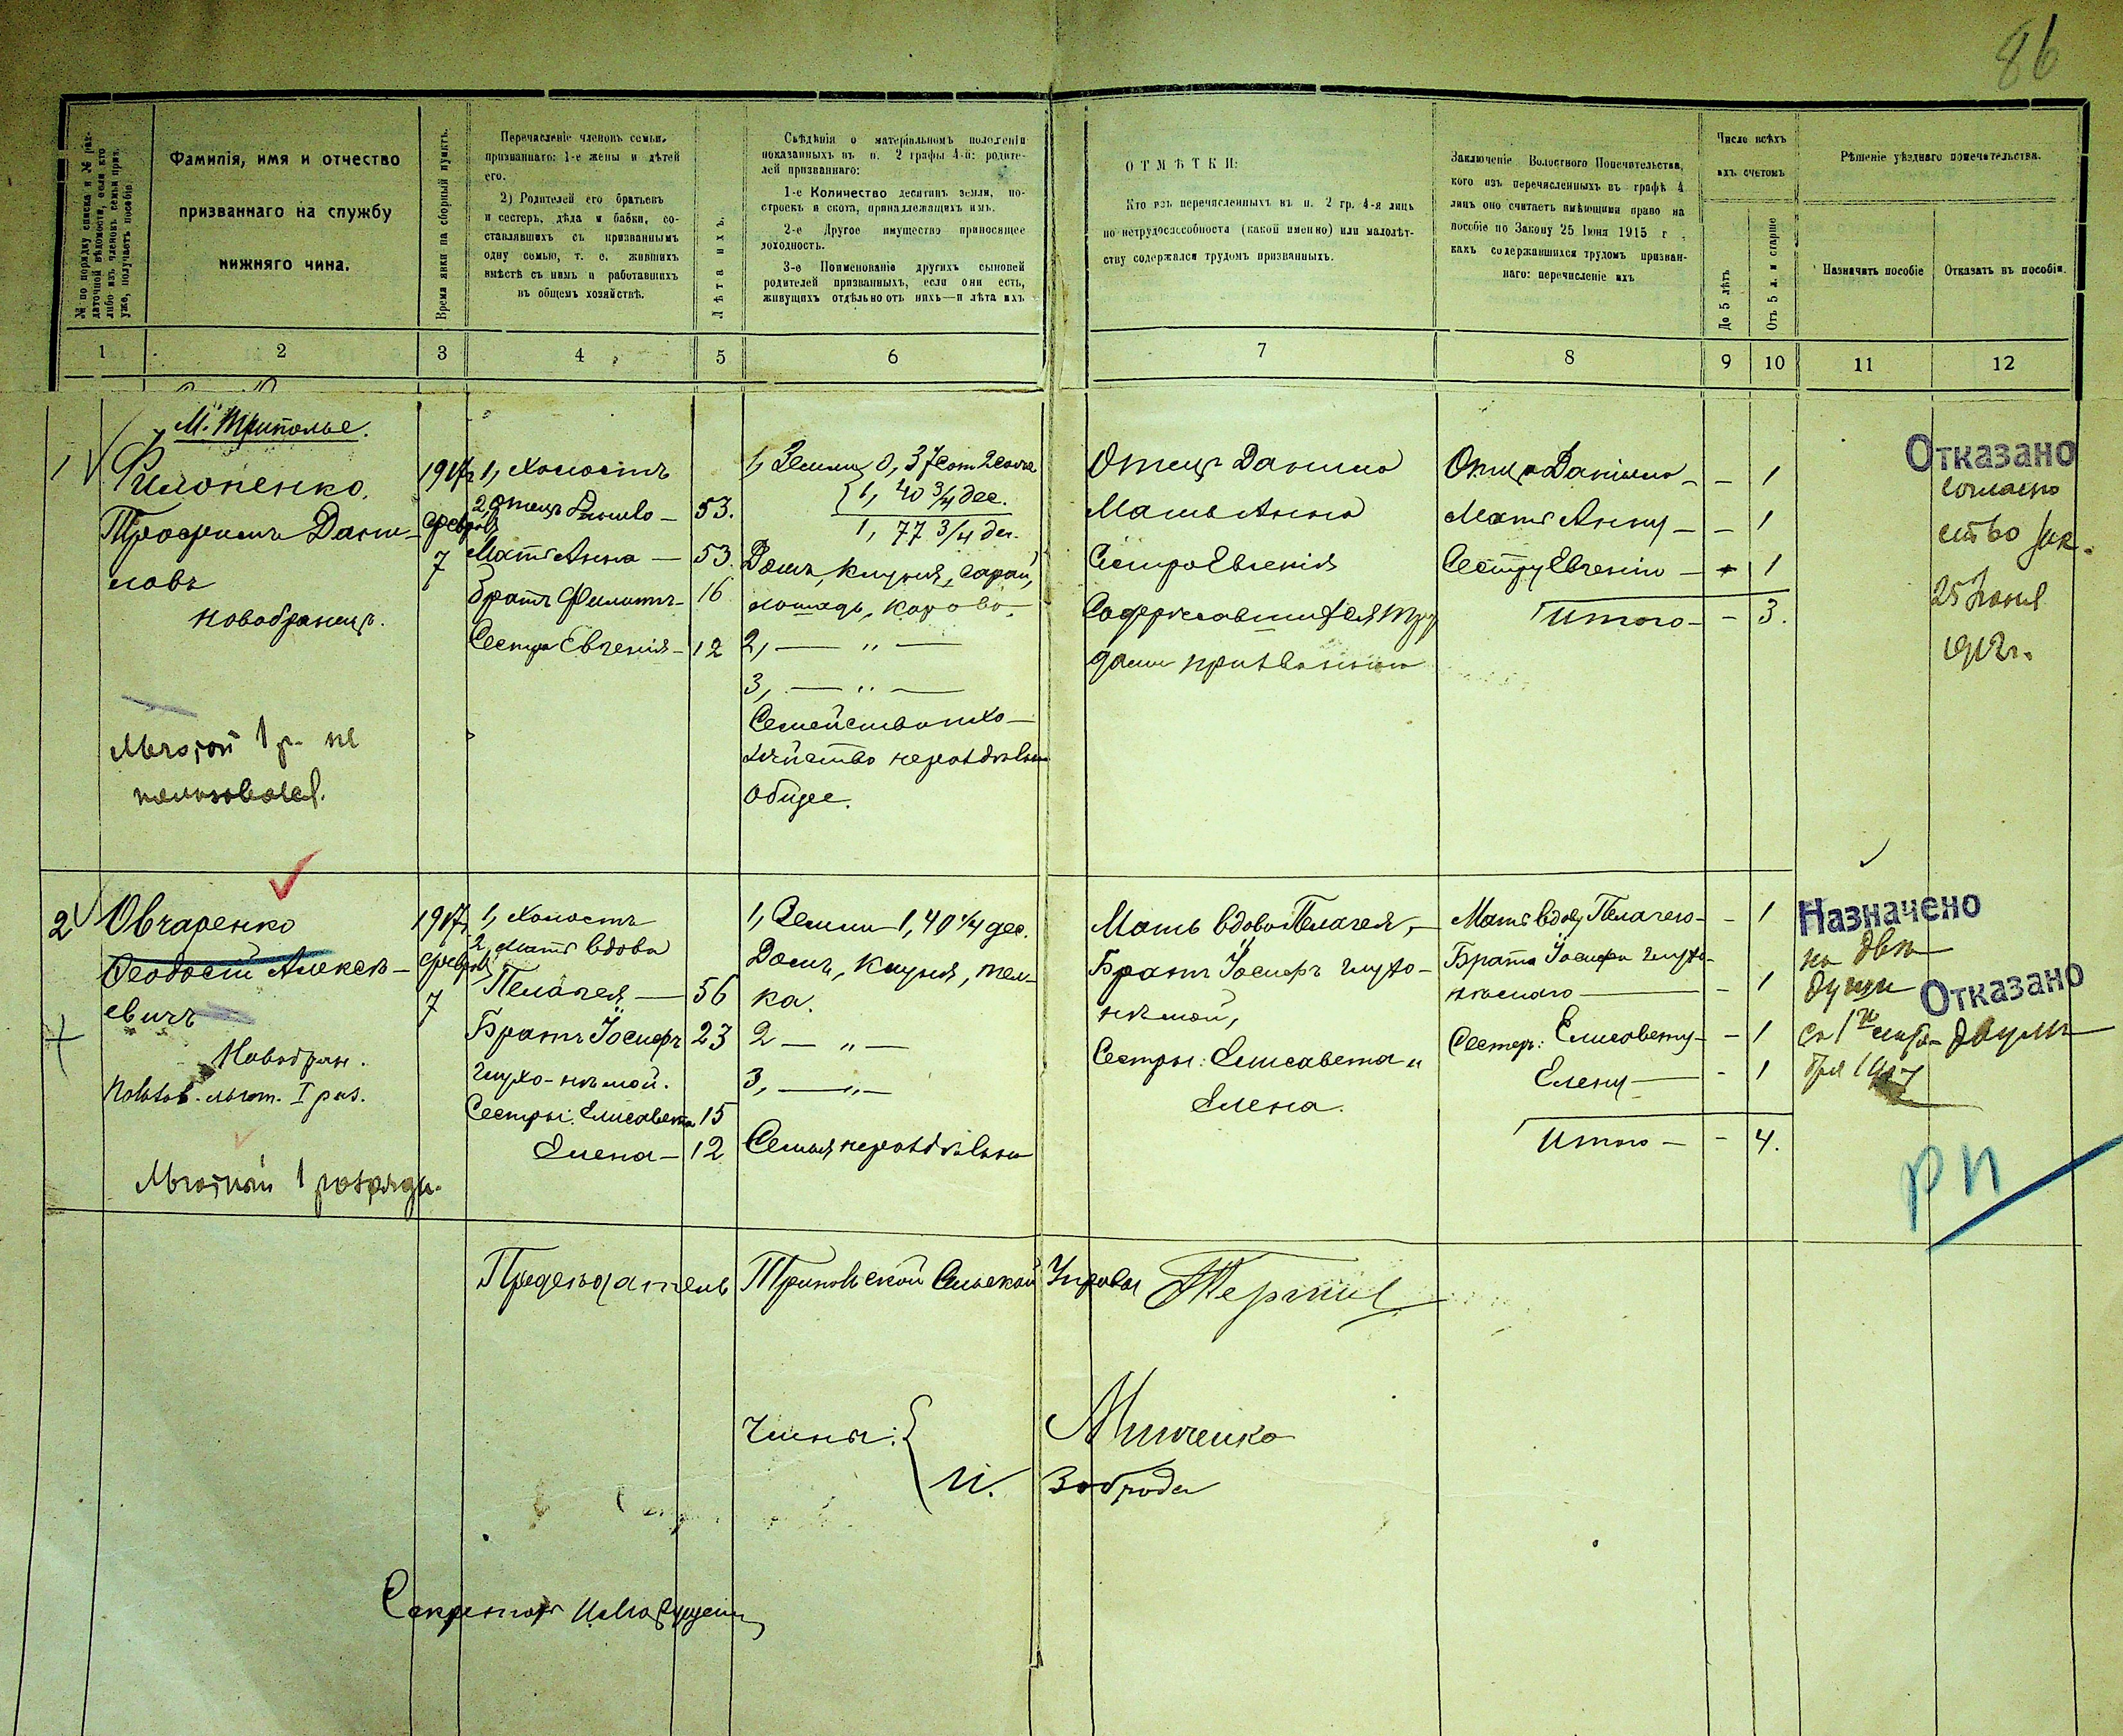 86
№ по порядку списка и № раз-
даточной вѣдомости, если кто
либо изъ членовъ семьи приз.
уже, получаетъ пособіе.
Фамилія, имя и отчество
призваннаго на службу
нижняго чина.
Время явки на сборный пунктъ.
Перечисленіе членовъ семьи,
призваннаго: 1-е жены и дѣтей
его.
2) Родителей его братьевъ
и сестеръ, дѣда и бабки, со-
ставлявшихъ съ призваннымъ
одну семью, т. е. жившихъ
вмѣстѣ съ нимъ и работавшихъ
въ общемъ хозяйствѣ.
Лѣта ихъ.
Свѣдѣнія о матеріальномъ положеніи
показанныхъ въ п. 2 графы 4-й: родите-
лей призваннаго:
1-е Количество десятинъ земли, по-
строекъ и скота, принадлежащихъ имъ.
2-е Другое имущество приносящее
доходность.
3-е Поименованіе другихъ сыновей
родителей призванныхъ, если они есть,
живущихъ отдѣльно отъ нихъ—и лѣта ихъ
ОТМѢТКИ:
Кто изъ перечисленныхъ въ п. 2 гр. 4-я лицъ
по нетрудоспособности (какой именно) или малолѣт-
ству содержался трудомъ призванныхъ.
Заключеніе Волостного Попечительства,
кого изъ перечисленныхъ въ графѣ 4
лицъ оно считаетъ имѣющими право на
пособіе по Закону 25 Іюня 1915 г.,
какъ содержавшихся трудомъ призван-
наго: перечисленіе ихъ
Число всѣхъ
ихъ счетомъ
До 5 лѣтъ
Отъ 5 л. и старше
Рѣшеніе уѣзднаго попечительства.
Назначить пособіе
Отказать въ пособіи.
1 2 3 4 5 6 7 8 9 10 11 12
М. Триполье.
1
Филоненко,
Трофимъ Дани-
ловъ
новобранецъ.
Льготой 1 р. не
пользовался.
1917г
февраль
7
1, Холостъ
2, Отецъ Данило — 53.
Мать Анна — 53.
Братъ Филиппъ — 16
Сестра Евгенія — 12
1, Земли 0, 37
1, 40 3/4 дес.
1, 77 3/4 дес.
Домъ, клуня, сарай,
лошадь, корова.
2, — „ —
3, — „ —
Семейство и хо-
зяйство нераздѣльно
общее.
Отецъ Данило
Мать Анна
Сестра Евгенія
Содержавшихся тру
дами призваннаго
Отца Данило — – 1
Мать Анну — – 1
Сестру Евгенію — – 1
Итого — – 3.
Отказано
согласно
ст. 60 зак.
25 Іюня
1912г.
2
Овчаренко
Феодосій Алексѣ-
евичъ
Новобран.
льгот. I раз.
Льготный 1 разряда.
1917г
февраль
7
1, Холостъ
2, Мать вдова
Пелагея — 56
Братъ Іосифъ 23
глухо-нѣмой.
Сестры: Елисавета 15
Елена — 12
1, Земли 1, 40 1/4 дес.
Домъ, клуня, тел-
ка.
2 — „ —
3, — „ —
Семья нераздѣльна
Мать вдова Пелагея, —
Братъ Іосифъ глухо-
нѣмой,
Сестры: Елисавета и
Елена.
Мать вдову Пелагею — – 1
Брата Іосифа глухо-
нѣмого — – 1
Сестеръ: Елисавету — – 1
Елену — – 1
Итого — – 4.
Назначено
на двѣ
души
съ 1го
бря 1917
Отказано
двумъ
РП
Предсѣдатель Трипольской Сельской Управы
Члены:
Минченко
И. Заброда
Секретарь